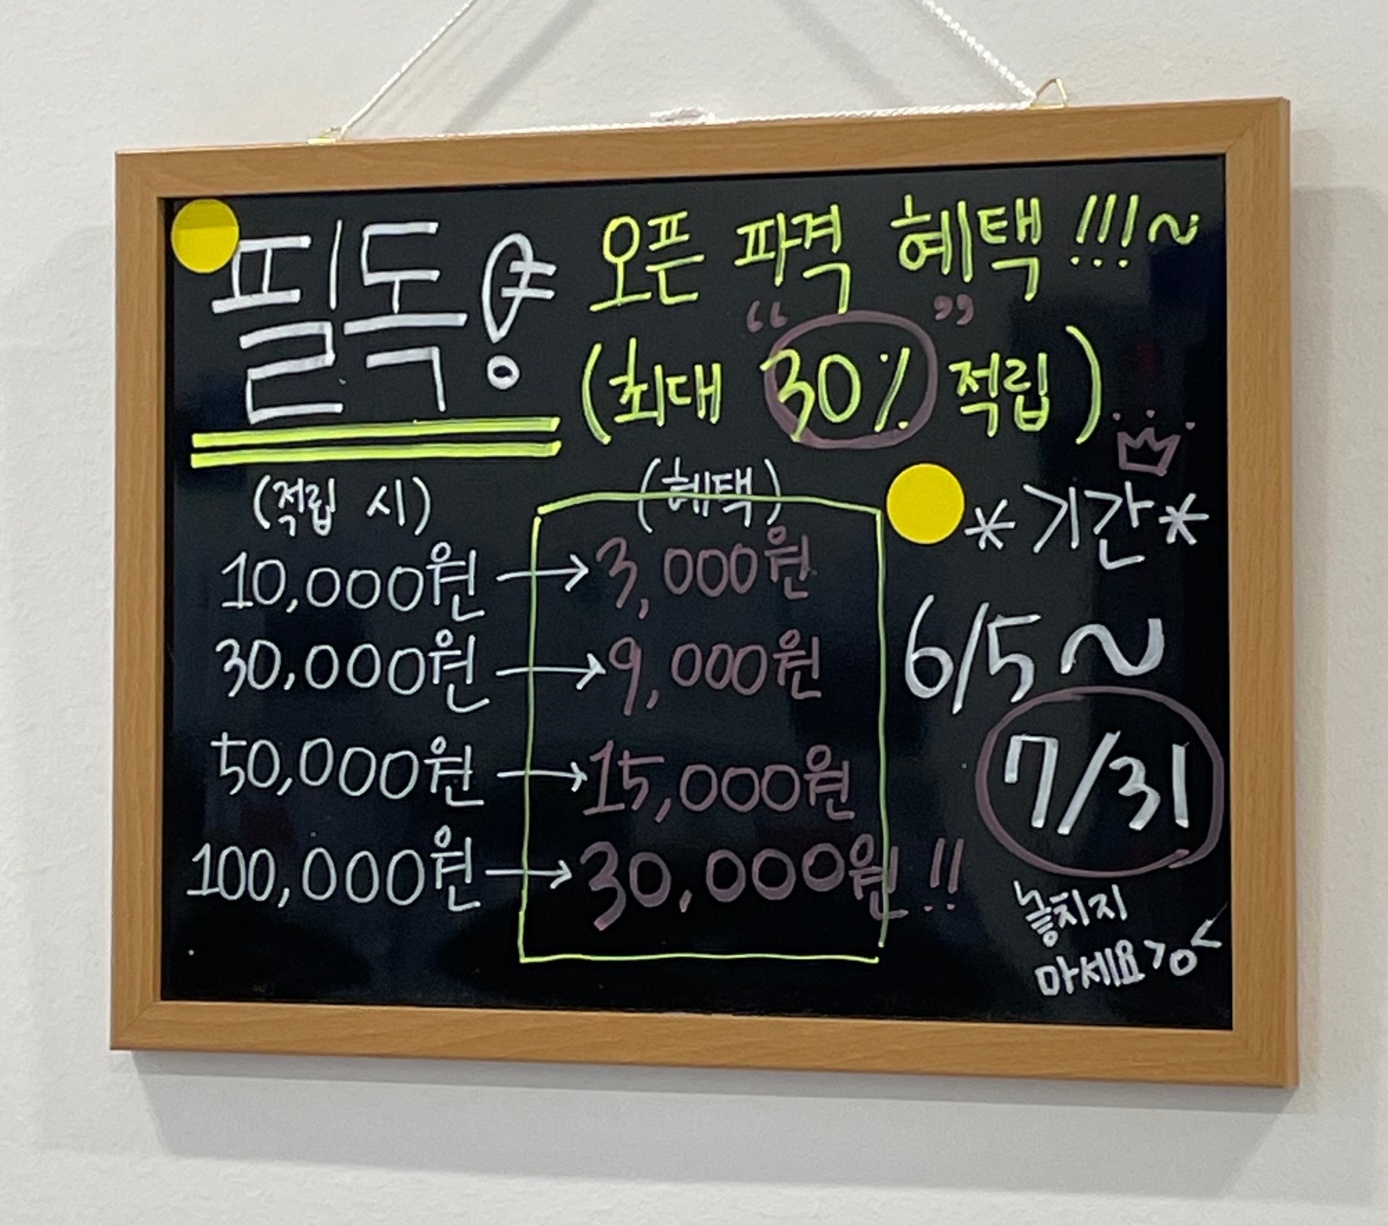 필독! 오픈 파격 혜택!!!~
(최대 "30%" 적립)
(적립 시) (혜택)
10,000원 → 3,000원
30,000원 → 9,000원
50,000원 → 15,000원
100,000원 → 30,000원!!
*기간*
6/5~
7/31
놓치지
마세요>o<